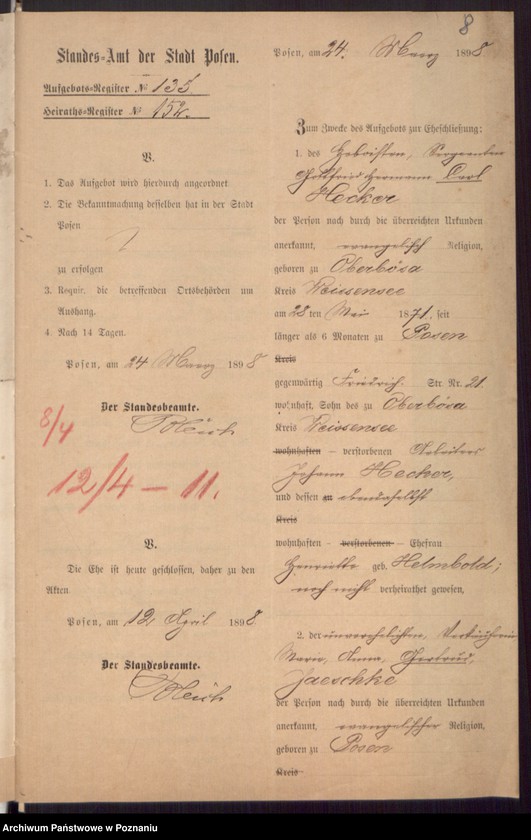 8
Standes-Amt der Stadt Posen.
Aufgebots-Register № 135.
Heiraths-Register № 152.
V.
1. Das Aufgebot wird hierdurch angeordnet
2. Die Bekanntmachung desselben hat in der Stadt
Posen
zu erfolgen
3. Requir. die betreffenden Ortsbehörden um
Aushang.
4. Nach 14 Tagen.
Posen, am 24 Maerz 1898
Der Standesbeamte.
8/4
12/4 – 11.
V.
Die Ehe ist heute geschlossen, daher zu den
Akten
Posen, am 12 April 1898.
Der Standesbeamte.
Posen, am 24. Maerz 1898
Zum Zwecke des Aufgebots zur Eheschließung:
1. des Hoboisten, Sergeanten
Gottfried Hermann Carl
Hecker
der Person nach durch die überreichten Urkunden
anerkannt, evangelisch Religion,
geboren zu Oberbösa
Kreis Weissensee
am 28 ten Mai 1871. seit
länger als 6 Monaten zu Posen
Kreis
gegenwärtig Friedrich. Str Nr. 21
wohnhaft, Sohn des zu Oberbösa
Kreis Weissensee
wohnhaften – verstorbenen Arbeiters
Johann Hecker,
und dessen zu ebendaselbst
Kreis
wohnhaften – verstorbenen – Ehefrau
Henriette geb. Helmbold;
noch nicht verheirathet gewesen,
2. der unverehelichten, Verkäuferin
Marie, Anna, Gertrud,
Jaeschke
der Person nach durch die überreichten Urkunden
anerkannt, evangelischer Religion,
geboren zu Posen
Kreis
Archiwum Państwowe w Poznaniu